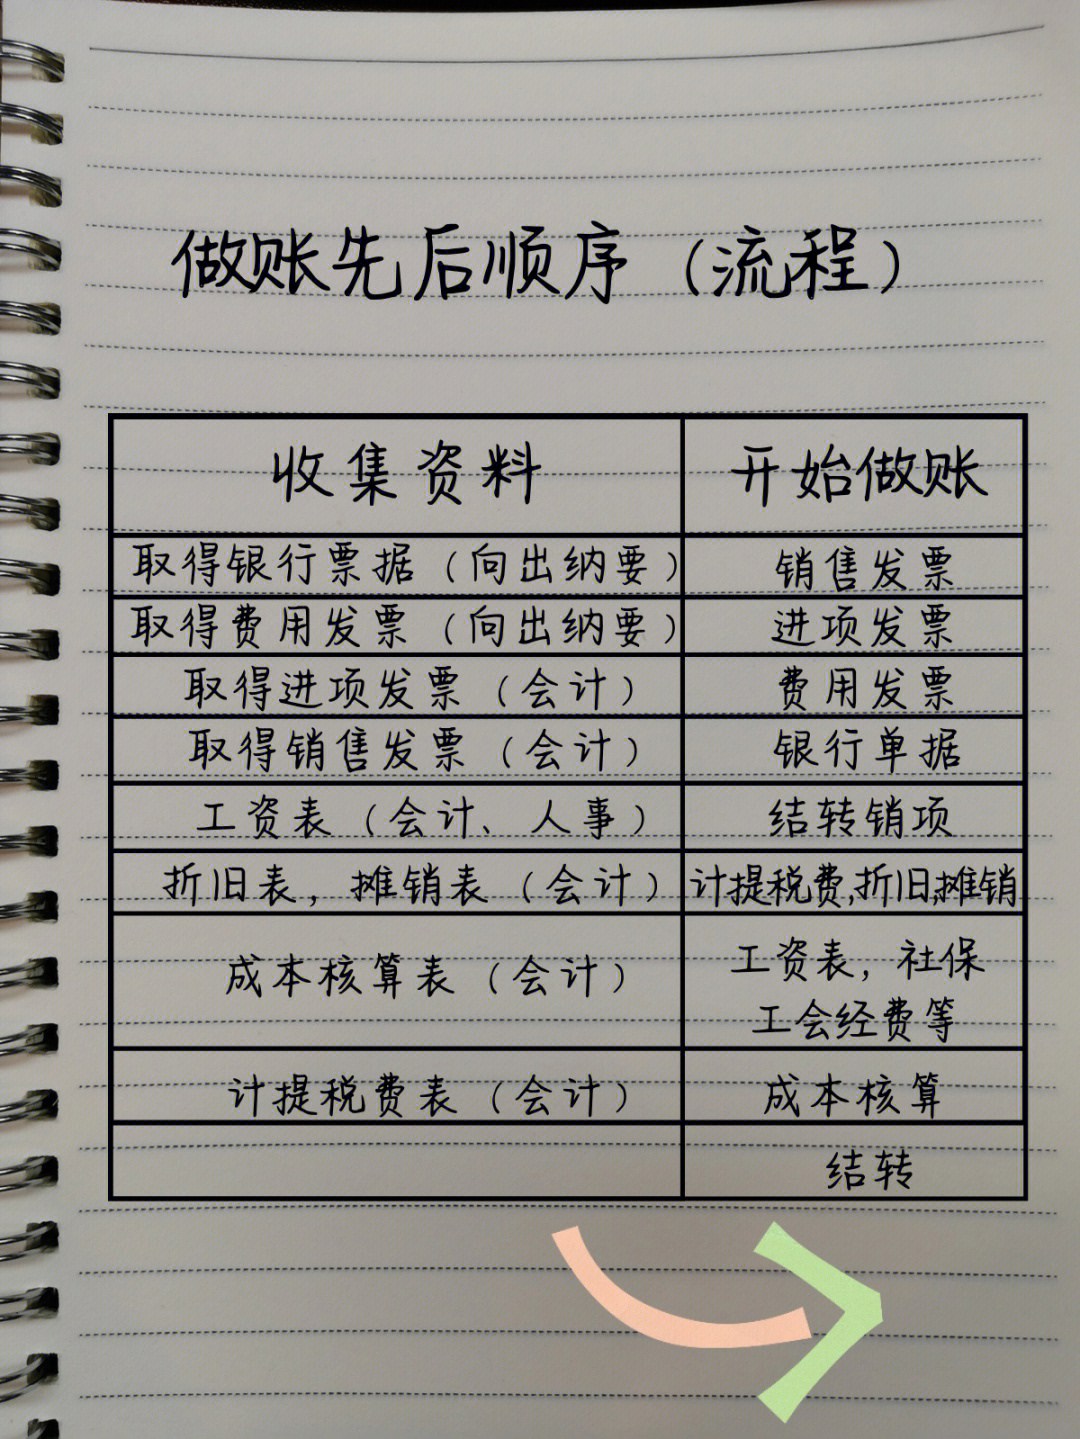 做账先后顺序（流程）
收集资料 开始做账
取得银行票据（向出纳要） 销售发票
取得费用发票（向出纳要） 进项发票
取得进项发票（会计） 费用发票
取得销售发票（会计） 银行单据
工资表（会计、人事） 结转销项
折旧表，摊销表（会计） 计提税费,折旧,摊销
成本核算表（会计） 工资表，社保
工会经费等
计提税费表（会计） 成本核算
结转